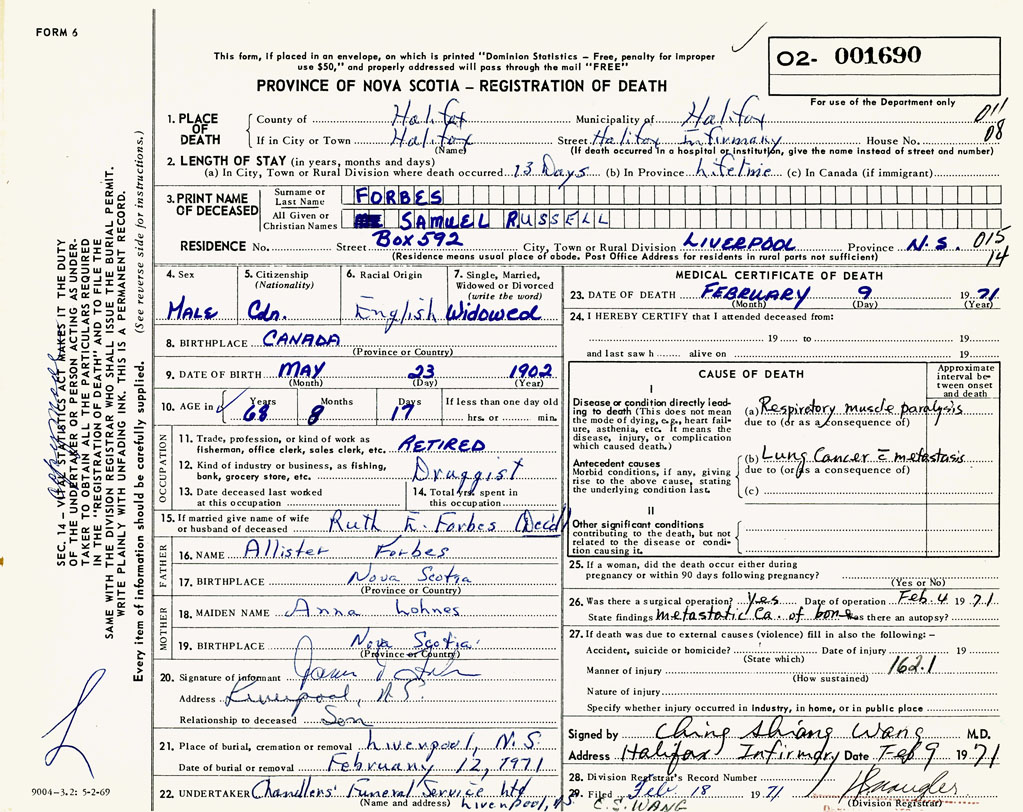 FORM 6
This form, if placed in an envelope, on which is printed "Dominion Statistics – Free, penalty for improper
use $50," and properly addressed will pass through the mail "FREE"
O2- 001690
PROVINCE OF NOVA SCOTIA – REGISTRATION OF DEATH
For use of the Department only
1. PLACE OF DEATH
County of Halifax Municipality of Halifax 011
If in City or Town Halifax Street Halifax Infirmary House No. 08
(Name) (If death occurred in a hospital or institution, give the name instead of street and number)
2. LENGTH OF STAY (in years, months and days)
(a) In City, Town or Rural Division where death occurred 13 Days (b) In Province Lifetime (c) In Canada (if immigrant)
3. PRINT NAME OF DECEASED
Surname or Last Name FORBES
All Given or Christian Names SAMUEL RUSSELL
RESIDENCE No. Street Box 592 City, Town or Rural Division LIVERPOOL Province N.S. 015
(Residence means usual place of abode. Post Office Address for residents in rural parts not sufficient) 14
4. Sex
MALE
5. Citizenship
(Nationality)
Cdn.
6. Racial Origin
English
7. Single, Married,
Widowed or Divorced
(write the word)
Widowed
8. BIRTHPLACE CANADA
(Province or Country)
9. DATE OF BIRTH MAY 23 1902
(Month) (Day) (Year)
10. AGE in Years Months Days If less than one day old
68 8 17 hrs. or min.
OCCUPATION
11. Trade, profession, or kind of work as
fisherman, office clerk, sales clerk, etc. RETIRED
12. Kind of industry or business, as fishing,
bank, grocery store, etc. Druggist
13. Date deceased last worked
at this occupation
14. Total yrs. spent in
this occupation
15. If married give name of wife
or husband of deceased Ruth E. Forbes (Decd)
FATHER
16. NAME Allister Forbes
17. BIRTHPLACE Nova Scotia
(Province or Country)
MOTHER
18. MAIDEN NAME Anna Lohnes
19. BIRTHPLACE Nova Scotia
(Province or Country)
20. Signature of informant
Address Liverpool, N.S.
Relationship to deceased Son
21. Place of burial, cremation or removal Liverpool, N.S
Date of burial or removal February 12, 1971
22. UNDERTAKER Chandlers' Funeral Service Ltd
(Name and address) Liverpool, NS
MEDICAL CERTIFICATE OF DEATH
23. DATE OF DEATH FEBRUARY 9 1971
(Month) (Day) (Year)
24. I HEREBY CERTIFY that I attended deceased from:
19 to 19
and last saw h alive on 19
CAUSE OF DEATH
Approximate
interval be-
tween onset
and death
I
Disease or condition directly lead-
ing to death (This does not mean
the mode of dying, e.g., heart fail-
ure, asthenia, etc. It means the
disease, injury, or complication
which caused death.)
(a) Respiratory muscle paralysis
due to (or as a consequence of)
Antecedent causes
Morbid conditions, if any, giving
rise to the above cause, stating
the underlying condition last.
(b) Lung Cancer = metastasis
due to (or as a consequence of)
(c)
II
Other significant conditions
contributing to the death, but not
related to the disease or condi-
tion causing it.
25. If a woman, did the death occur either during
pregnancy or within 90 days following pregnancy?
(Yes or No)
26. Was there a surgical operation? Yes Date of operation Feb. 4 1971
State findings metastatic Ca. of bone Was there an autopsy?
27. If death was due to external causes (violence) fill in also the following: –
Accident, suicide or homicide? Date of injury 19
(State which)
Manner of injury 162.1
(How sustained)
Nature of injury
Specify whether injury occurred in industry, in home, or in public place
Signed by Ching Shiang Wang M.D.
Address Halifax Infirmary Date Feb 9 1971
28. Division Registrar's Record Number
29. Filed Feb 18 1971
C.S. WANG (Division Registrar)
SEC. 14 – VITAL STATISTICS ACT MAKES IT THE DUTY
OF THE UNDERTAKER OR PERSON ACTING AS UNDER-
TAKER TO OBTAIN ALL THE PARTICULARS REQUIRED
IN THE "REGISTRATION OF DEATH" AND TO FILE THE
SAME WITH THE DIVISION REGISTRAR WHO SHALL ISSUE THE BURIAL PERMIT.
WRITE PLAINLY WITH UNFADING INK. THIS IS A PERMANENT RECORD.
Every item of information should be carefully supplied. (See reverse side for instructions.)
9004-3.2: 5-2-69